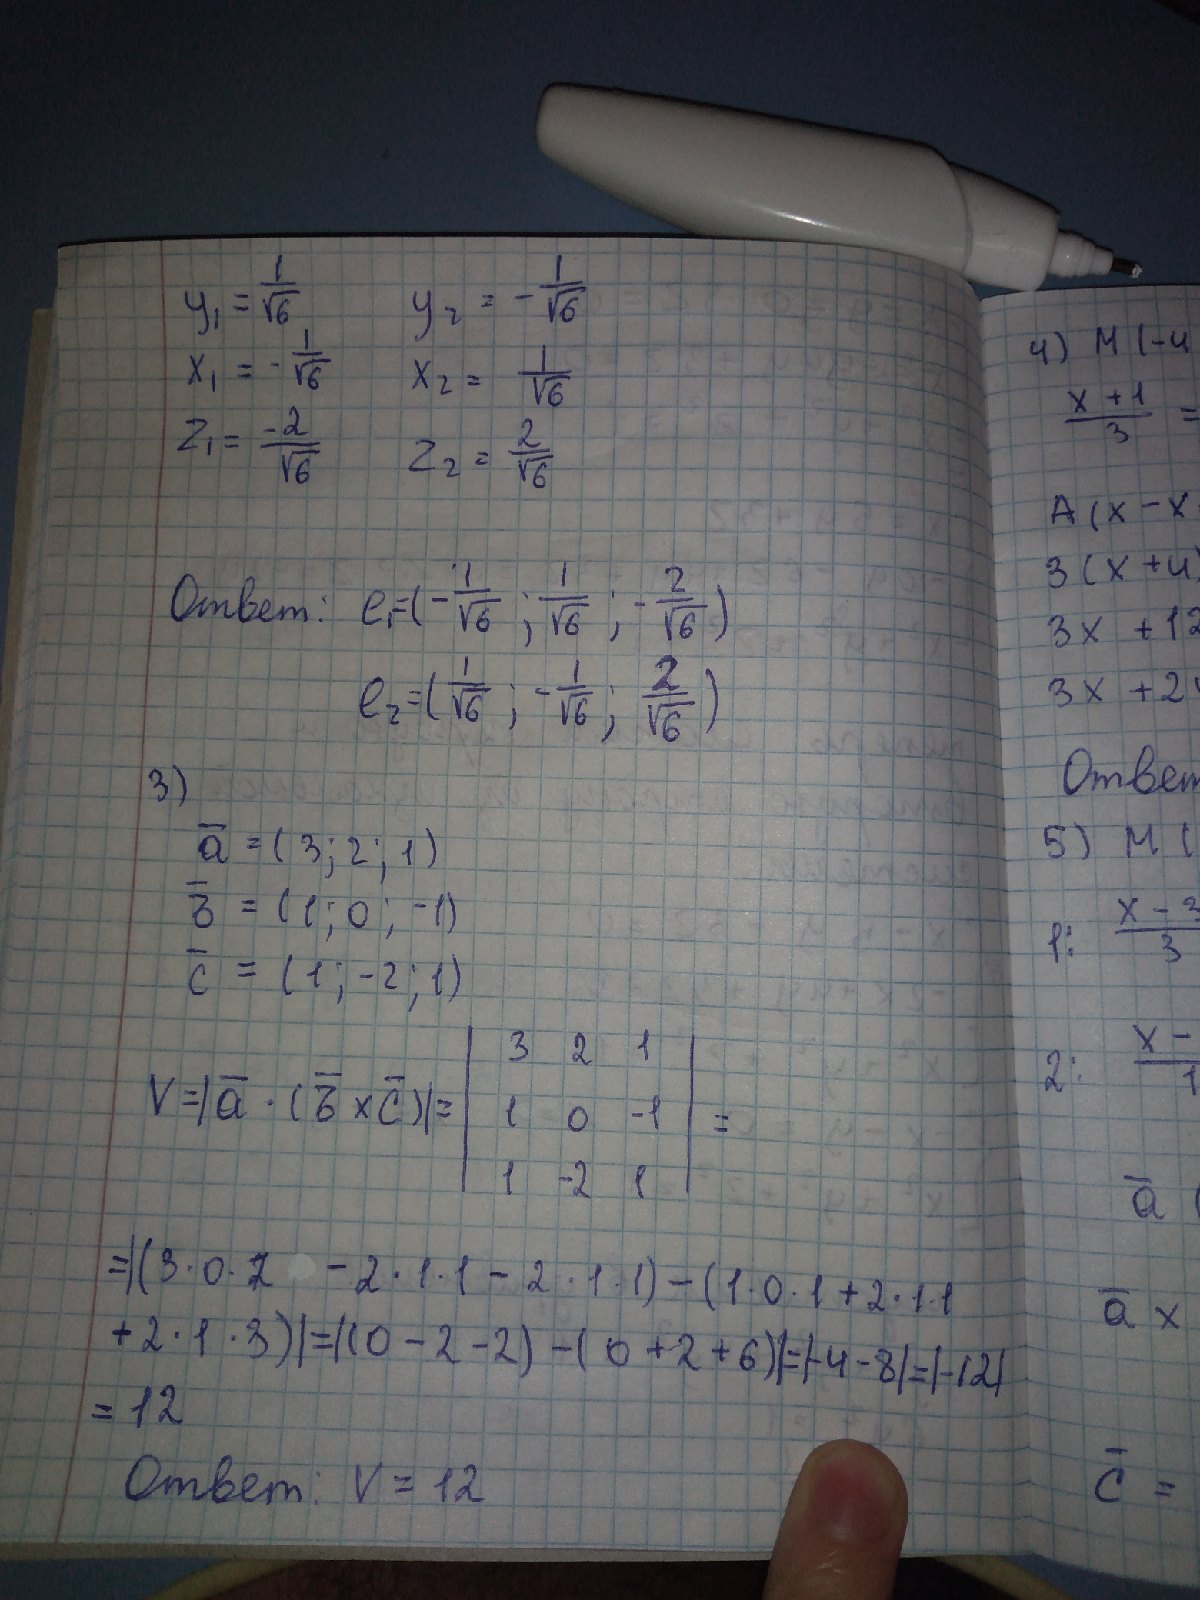 y₁ = 1/√6 y₂ = - 1/√6
x₁ = - 1/√6 x₂ = 1/√6
z₁ = -2/√6 z₂ = 2/√6
Ответ: e₁=(- 1/√6 ; 1/√6 ; - 2/√6)
e₂=(1/√6 ; - 1/√6 ; 2/√6)
3)
a̅ = (3; 2; 1)
b̅ = (1; 0; -1)
c̅ = (1; -2; 1)
V=|a̅ · (b̅ × c̅)|= | 3 2 1 |
| 1 0 -1 | =
| 1 -2 1 |
=|(3·0·1 -2·1·1-2·1·1)-(1·0·1+2·1·1
+2·1·3)|=|(0-2-2)-(0+2+6)|=|-4-8|=|-12|
= 12
Ответ: V = 12
4) M(-4
x+1/3 =
A(x-x
3(x+4)
3x +12
3x +2
Ответ
5) M(
1: x-/3
2: x-/1
a̅ (
a̅ ×
c̅ =